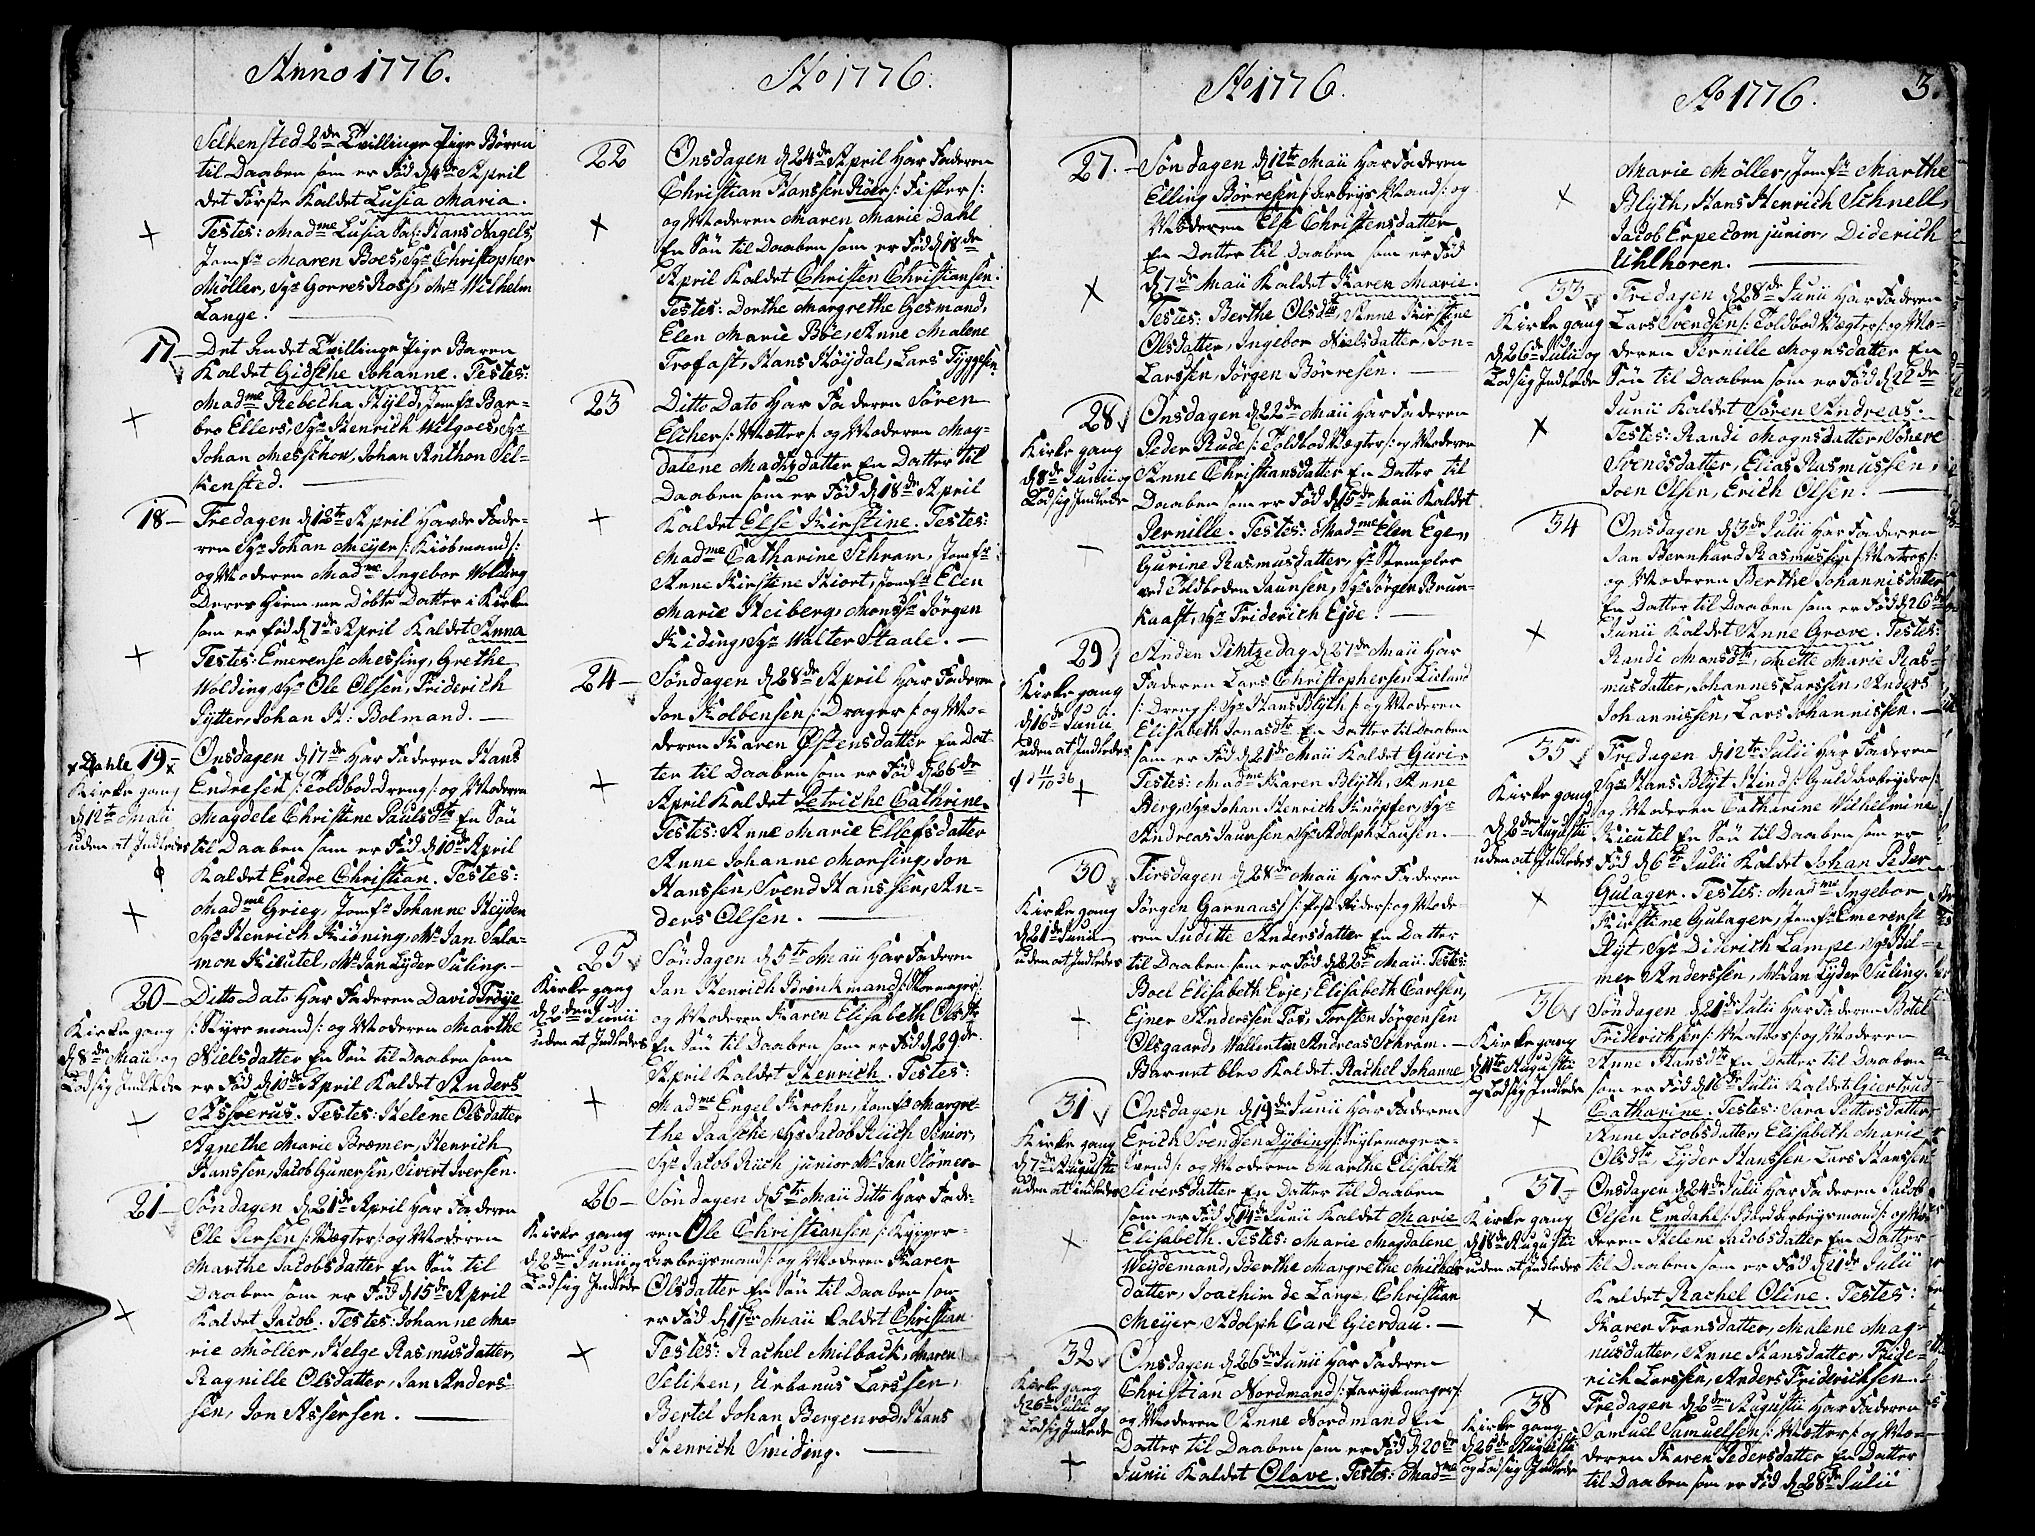 Anno 1776.
Selkensted 2de Tvillinge Pige Børen
til Daaben som er Fød d 4de April
det Første Kaldet Lusia Maria.
Testes: Madme Lusia Sal: Hans Nagels,
Jomfr Maren Boes, Sgr Christopher
Möller, Sgr Gorres Ross, Mr Wilhelm
Lange.
17
Det Andet Tvillinge Pige Baren
Kaldet Gidsche Johanne. Testes:
Madme Rebecha Kyld, Jomfr Bar-
bro Ellers, Sgr Henrich Wilgoes, Sgr
Johan Messchow, Johan Anthon Sel-
kensted.
18
Fredagen d 12te April Havde Fade-
ren Sgr Johan Meyer /: Kiöbmand :/
og Moderen Madme Ingebor Wolding
Deres Hiemme Döbte Datter i Kirken
som er fød d 7de April Kaldet Anna
Testes: Emerense Messing, Grethe
Wolding, Sgr Ole Olsen, Friderich
Pytter, Johan H: Bolmand.
x Dahle 19 x
Kirke gang
d 12te Maii
uden at Indledes
Onsdagen d 17de Har Faderen Hans
Endresen /: Toldbod Dreng :/ og Moderen
Magdele Christine Pauls dtr En Sön
til Daaben som er Fød d 10de April
Kaldet Endre Christian. Testes:
Madme Grieg, Jomfr Johanne Heyden
Sgr Henrich Kröning, Mr Jan Sala-
mon Kieutel, Mr Jan Lyder Suling.
20
Kirke gang
d 8de Maii og
Lod sig Indlede
Ditto Dato Har Faderen David Troye
/: Styrmand :/ og Moderen Marthe
Nielsdatter En Sön til Daaben som
er Fød d 10de April Kaldet Anders
Asverus. Testes: Helene Olsdatter
Agnethe Marie Bræmer, Henrich
Hanssen, Jacob Gunersen, Sivert Iversen.
21
Söndagen d 21de April Har Faderen
Ole Persen /: Vægter :/ og Moderen
Marthe Jacobsdatter En Sön til
Daaben som er Fød d 15de April
Kaldet Jacob. Testes: Johanne Ma-
rie Möller, Helge Rasmusdatter,
Ragnille Olsdatter, Jan Anders-
sen, Jon Assersen.
Ao 1776.
22
Onsdagen d 24de April Har Faderen
Christian Hanssen Röer /: Fisker :/
og Moderen Maren Marie Dahl
En Sön til Daaben som er Fød d 18de
April Kaldet Christen Christiansen.
Testes: Dorthe Margrethe Gesmand,
Elen Marie Böe, Anne Malene
Trofast, Hans Höysdal, Lars Tyggesen.
23
Ditto Dato Har Faderen Sören
Elcher /: Mætter :/ og Moderen Mag-
dalene Madsdatter En Datter til
Daaben som er Fød d 18de April
Kaldet Else Kirstine. Testes:
Madme Catharine Schram, Jomfr
Anne Kirstine Hiort, Jomfr Elen
Marie Heiberg, Monsr Jörgen
Kiding, Sgr Walter Staale.
24
Söndagen d 28de April Har Faderen
Jon Kolbensen /: Drager :/ og Mo-
deren Karen Östensdatter En Dat-
ter til Daaben som er Fød d 26de
April Kaldet Petriche Cathrine.
Testes: Anne Marie Ellefsdatter
Anne Johanne Monsing, Jon
Hanssen, Svend Hanssen, An-
ders Olsen.
25
Kirke gang
d 2den Junii
uden at Indledes
Söndagen d 5te Maii Har Faderen
Jan Henrich Brinkmand /: Skomager :/
og Moderen Karen Elisabeth Ols dtr
En Sön til Daaben som er Fød d 29de
April Kaldet Henrich. Testes:
Madme Engel Krohn, Jomfr Margre-
the Paasche, Sgr Jacob Rüch Senior,
Sgr Jacob Rüch junior, Mr Jan Stömer
26
Kirke gang
d 2den Junii og
Lod sig Indlede
Söndagen d 5te Maii Ditto Har Fade-
ren Ole Christiansen /: Brygger-
Arbeysmand :/ og Moderen Karen
Olsdatter En Sön til Daaben som
er Fød d 1ste Maii Kaldet Christian
Testes: Rachel Milback, Maren
Seliken, Urbanus Larssen,
Bertel Johan Bergenrod, Hans
Henrich Smiding.
Ao 1776.
27.
Söndagen d 12te Maii Har Faderen
Elling Börresen /: Arbeys Mand :/ og
Moderen Else Christensdatter
En Datter til Daaben som er Fød
d 7de Maii Kaldet Karen Marie.
Testes: Berthe Olsdtr, Anne Kirstine
Olsdatter, Ingebor Nielsdatter, Jon
Larssen, Jörgen Börresen.
28
Kirke gang
d 8de Junii og
Lod sig Indlede
Onsdagen d 22de Maii Har Faderen
Peder Rude /: Toldbod Vægter :/ og Moderen
Anne Christiansdatter En Datter til
Daaben som er Fød d 15de Maii Kaldet
Pernille. Testes: Madme Elen Egen,
Gurine Rasmusdatter, Sr Stempler
ved Toldboden Jaunsen, Sgr Jörgen Brun-
kaast, Sgr Friderich Eyde.
29
Kirke gang
d 16de Junii
uden at Indledes
d d 11/10 36
Anden Pintzedag d 27de Maii Har
Faderen Lars Christophersen Kieland
/: Dreng p: Sgr Hans Blyth :/ og Moderen
Elisabeth Jonasdtr En Datter til Daaben
som er Fød d 21de Maii Kaldet Guri
Testes: Madme Karen Blyth, Anne
Berg, Sgr Johan Henrich Knöpfer, Sgr
Andreas Jaunsen, Sgr Adolph Lausen.
30
Kirke gang
d 21de Junii
uden at Indledes
Tirsdagen d 28de Maii Har Faderen
Jörgen Garnaas /: Post Rider :/ og Mode-
ren Juditte Andersdatter En Datter
til Daaben som er Fød d 22de Maii. Testes:
Boel Elisabeth Erje, Elisabeth Carlsen,
Ejner Anderssen Fos, Torsten Jörgensen
Olsgaard, Wallentin Andreas Schram.
Barnet blev Kaldet: Rachel Johanne
31
Kirke gang
d 7de Augustii
uden at indledes
Onsdagen d 19de Junii Har Faderen
Erich Svendsen Dybing /: Seylmager-
svend :/ og Moderen Marthe Elisabeth
Siversdatter En Datter til Daaben
som er Fød d 14de Junii Kaldet Marie
Elisabeth. Testes: Marie Magdalene
Weydemand, Berthe Margrethe Michels
datter, Joachim de Lange, Christian
Meyer, Adolph Carl Gierdau.
32
Kirke gang
d 26de Julii og
Lod sig Indlede
Onsdagen d 26de Junii Har Faderen
Christian Nordmand /: Paryckmager :/
og Moderen Anne Nordmand En
Datter til Daaben som er Fød d 20de
Junii Kaldet Olave. Testes: Madme
Ao 1776.
3.
Marie Möller, Jomfr Marthe
Blyth, Hans Henrich Schnell,
Jacob Erpecom junior, Diderich
Uhlhoren.
33
Kirke gang
d 26de Julii og
Lod sig Indlede
Fredagen d 28de Junii Har Faderen
Lars Svendsen /: Toldbod Vægter :/ og Mo-
deren Pernille Mognsdatter En
Sön til Daaben som er Fød d 22de
Junii Kaldet Sören Andreas.
Testes: Randi Mognsdatter, Synneve
Svendsdatter, Elias Rasmussen,
Joen Olsen, Erich Olsen.
34
Onsdagen d 3de Julii Har Faderen
Jan Bernhard Rasmussen /: Matros :/
og Moderen Berthe Johannisdatter
En Datter til Daaben som er Fød d 26de
Junii Kaldet Anne Grove. Testes:
Randi Mons dtr, Mette Marie Ras-
musdatter, Johannes Larssen, Anders
Johannissen, Lars Johannissen.
35
Kirke gang
d 2den Augustii
uden at Indledes
Fredagen d 12te Julii Har Faderen
Sgr Hans Blyt Kind /: Guld Arbeyder :/
og Moderen Catharine Wilhelmine
Kieutel En Sön til Daaben som er
Fød d 6te Julii Kaldet Johan Peder
Gulager. Testes: Madme Ingebor
Kirstine Gulager, Jomfr Emerense
Blyt, Sgr Diderich Lampe, Sgr Hil-
mer Anderssen, Mr Jan Lyder Suling.
36
Kirke gang
d 11te Augustii
og Lod sig Indlede
Söndagen d 21de Julii Har Faderen Botel
Friderichsen /: Matros :/ og Moderen
Anne Hans dtr En Datter til Daaben
som er Fød d 16de Julii Kaldet Giertrud
Catharine. Testes: Sara Pettersdatter
Anne Jacobsdatter, Elisabeth Marie
Ols dtr, Lyder Hanssen, Lars Hanssen
37
Kirke gang
d 18de Augustii
uden at Indledes
Onsdagen d 24de Julii Har Faderen Jacob
Olsen Emdahl /: Bord Arbeysmand :/ og Mo-
deren Helene Jacobsdatter En Datter
til Daaben som er Fød d 21de Julii
Kaldet Rachel Oline. Testes:
Karen Fransdatter, Malene Mag-
nusdatter, Anne Hansdatter, Fride-
rich Larssen, Anders Friderichsen.
38
Kirke gang
d 25de Augustii
og Lod sig Indlede
Fredagen d 2den Augustii Har Faderen
Samuel Samuelsen /: Mætter :/ og Mo-
deren Karen Pedersdatter En Datter
til Daaben som er Fød d 28de Julii